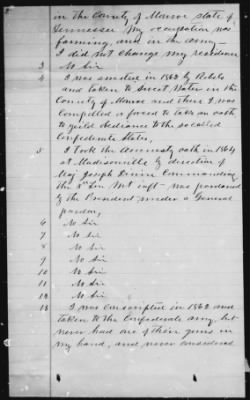 in the County of Monroe state of
Tennessee My occupation was
farming, and in the army
I did not change my residence
3 No Sir
4 I was arrested in 1862 by Rebels
and taken to Sweet Water in the
County of Monroe and there I was
Compelled or forced to take an oath
to yield obediance to the so called
Confederate States,
5 I took the Amnesty oath in 1864
at Madisonville by direction of
Maj Joseph Commanding
the 3" Inft was pardoned
by the President under a General
pardon,
6 No Sir
7 No Sir
8 No Sir
9 No Sir
10 No Sir
11 No Sir
12 No Sir
13 I was conscripted in 1862 and
taken to the Confederate army, but
never had one of their guns in
my hand, and never considered